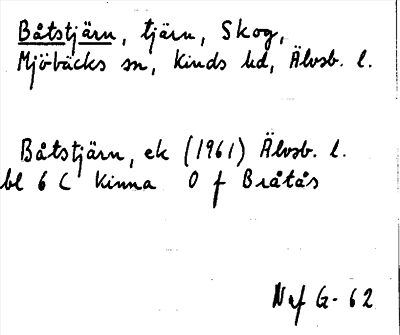 Båtstjärn, tjärn, Skog,
Mjöbäcks sn, Kinds hd, Älvsb. l.
Båtstjärn, ek (1961) Älvsb. l.
bl 6 C Kinna O f Bråtås
Naf G-62